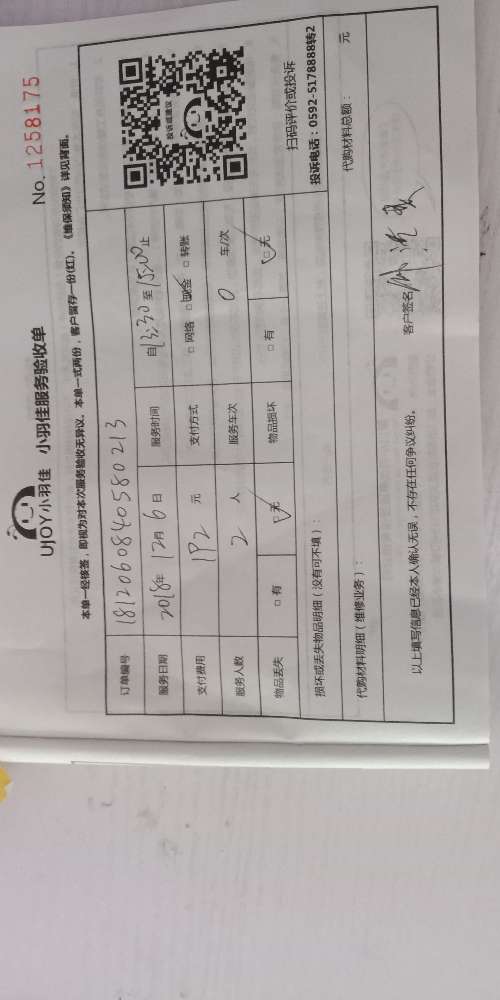 UJOY小羽佳 小羽佳服务验收单
No. 1258175
本单一经核签，即视为对本次服务验收无异议。本单一式两份，客户留存一份(红)。《维保须知》详见背面。
订单编号 181206084058 0213
服务日期 2018年 12月 6日 服务时间 自13:30至15:00止
支付费用 192 元 支付方式 □ 网络 □ 现金 □ 转账
服务人数 2 人 服务车次 0 车/次
物品丢失 □ 有 □ 无 物品损坏 □ 有 □ 无
投诉或建议
扫码评价或投诉
投诉电话：0592-5178888转2
损坏或丢失物品明细（没有可不填）：
代购材料明细（维修业务）： 代购材料总额： 元
以上填写信息已经本人确认无误，不存在任何争议纠纷。 客户签名